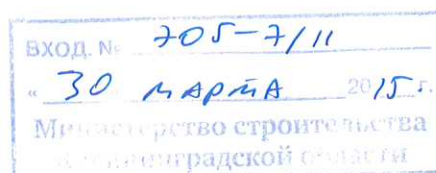 ВХОД. № 705-7/11
« 30 » МАРТА 2015 г.
Министерство строительства
Калининградской области